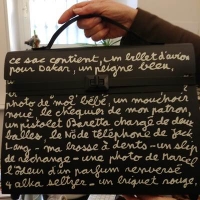 ce sac contient, un billet d'avion
pour Dakar, un peigne bleu,
photo de "moi" bébé, un mouchoir
noué, le chéquier de mon patron
un pistolet Beretta chargé de deux
balles, le N° de téléphone de Jack
Lang, - ma brosse à dents - un slip
de rechange - une photo de Marcel
l'odeur d'un parfum renversé
alka seltzer - un briquet rouge,